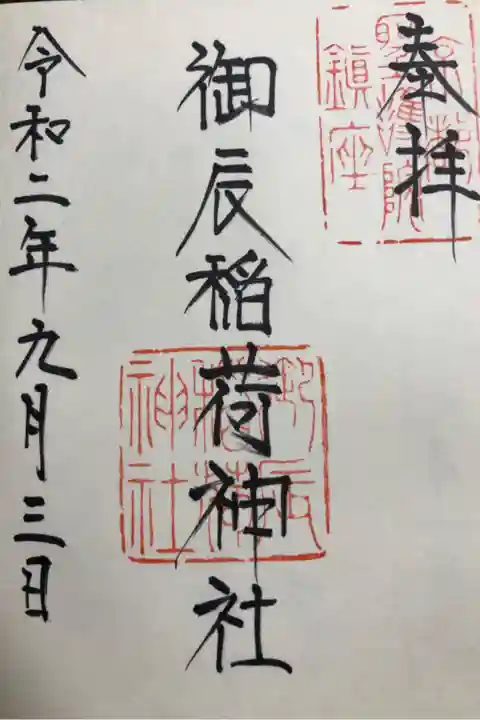 奉拝
京都
聖護院
鎮座
御辰稲荷神社
御辰
稲荷
神社
令和二年九月三日